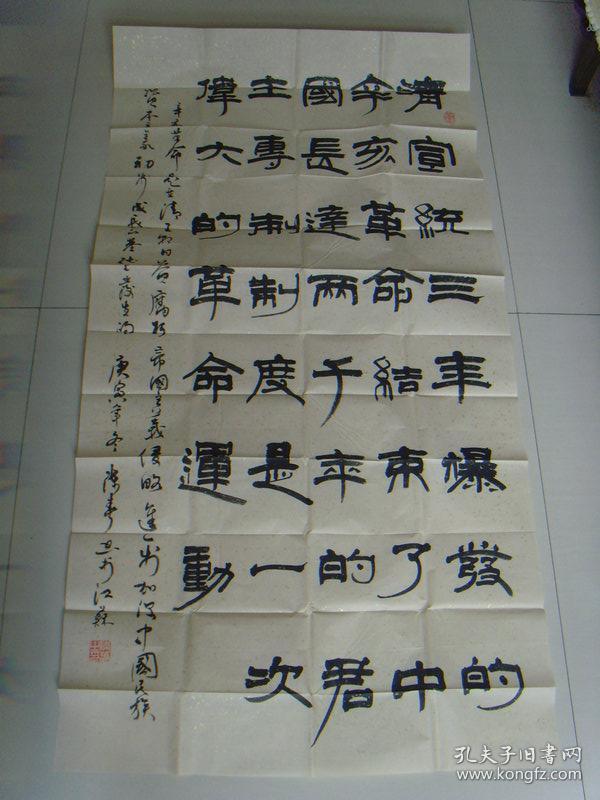 清宣統三年爆發的
辛亥革命結束了中
國長達兩千年的君
主專制制度是一次
偉大的革命運動
辛亥革命是在清王朝日益腐朽帝國主義侵略進一步加深中國民族
資本主義初步成長基礎上發生的 庚寅年冬 於江蘇
孔夫子旧書网
www.kongfz.com